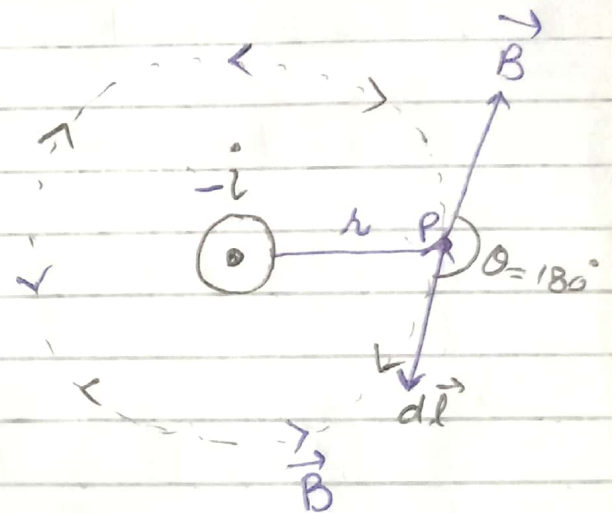 B
-i
r
P
θ=180°
dl
B